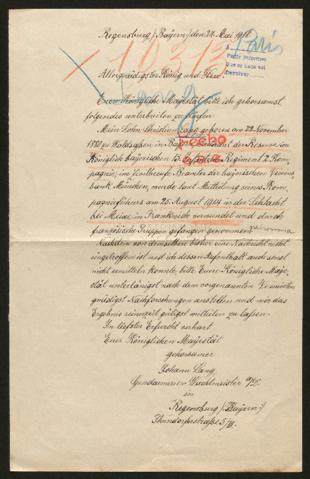 Regensburg /Bayern/ den 24. Mai 1915
Paris
103125
Lang
Allergnädigster König und Herr!
Eure Königliche Majestät bitte ich gehorsamst
folgendes unterbreiten zu dürfen.
Mein Sohn Christian Lang geboren am 22. November
in der Reserve im
Königlich bayerischen 15. Infanterie Regiment 2. Kom-
pagnie, im Zivilberufe Beamter der bayerischen Vereins-
bank München, wurde laut Mitteilung seines Kom-
pagnieführers am 25. August 1914 in der Schlacht
bei in Frankreich verwundet und durch
französische Truppen gefangen genommen
Nachdem von demselben bisher eine Nachricht nicht
eingetroffen ist und ich dessen Aufenthalt auch sonst
nicht ermitteln konnte, bitte Eurer Königliche Maje-
stät untertänigst nach dem vorgenannten Vermissten
gnädigst Nachforschungen anstellen und mir das
Ergebnis seinerzeit gütigst mitteilen zu lassen.
In tiefster Erfurcht erharrt
Eurer Königlichen Majestät
gehorsamer
Johann Lang,
Gendarmerie Wachtmeister a/D.
in
Regensburg /Bayern/